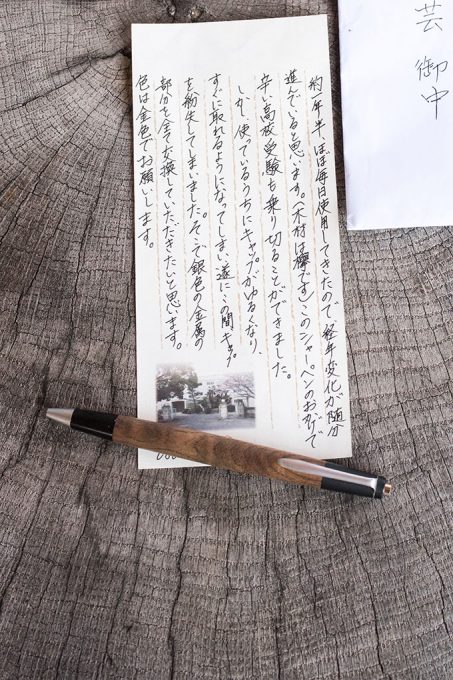 約一年半ほぼ毎日使用してきたので、経年変化が随分
進んでいると思います。(木材は欅です)このシャーペンのおかげで
辛い高校受験も乗り切ることができました。
しかし、使っているうちにキャップがゆるくなり、
すぐに取れるようになってしまい、遂にこの間キャップ
を紛失してしまいました。そこで銀色の金属の
部分を全て交換していただきたいと思います。
色は金色でお願いします。
芸 御中